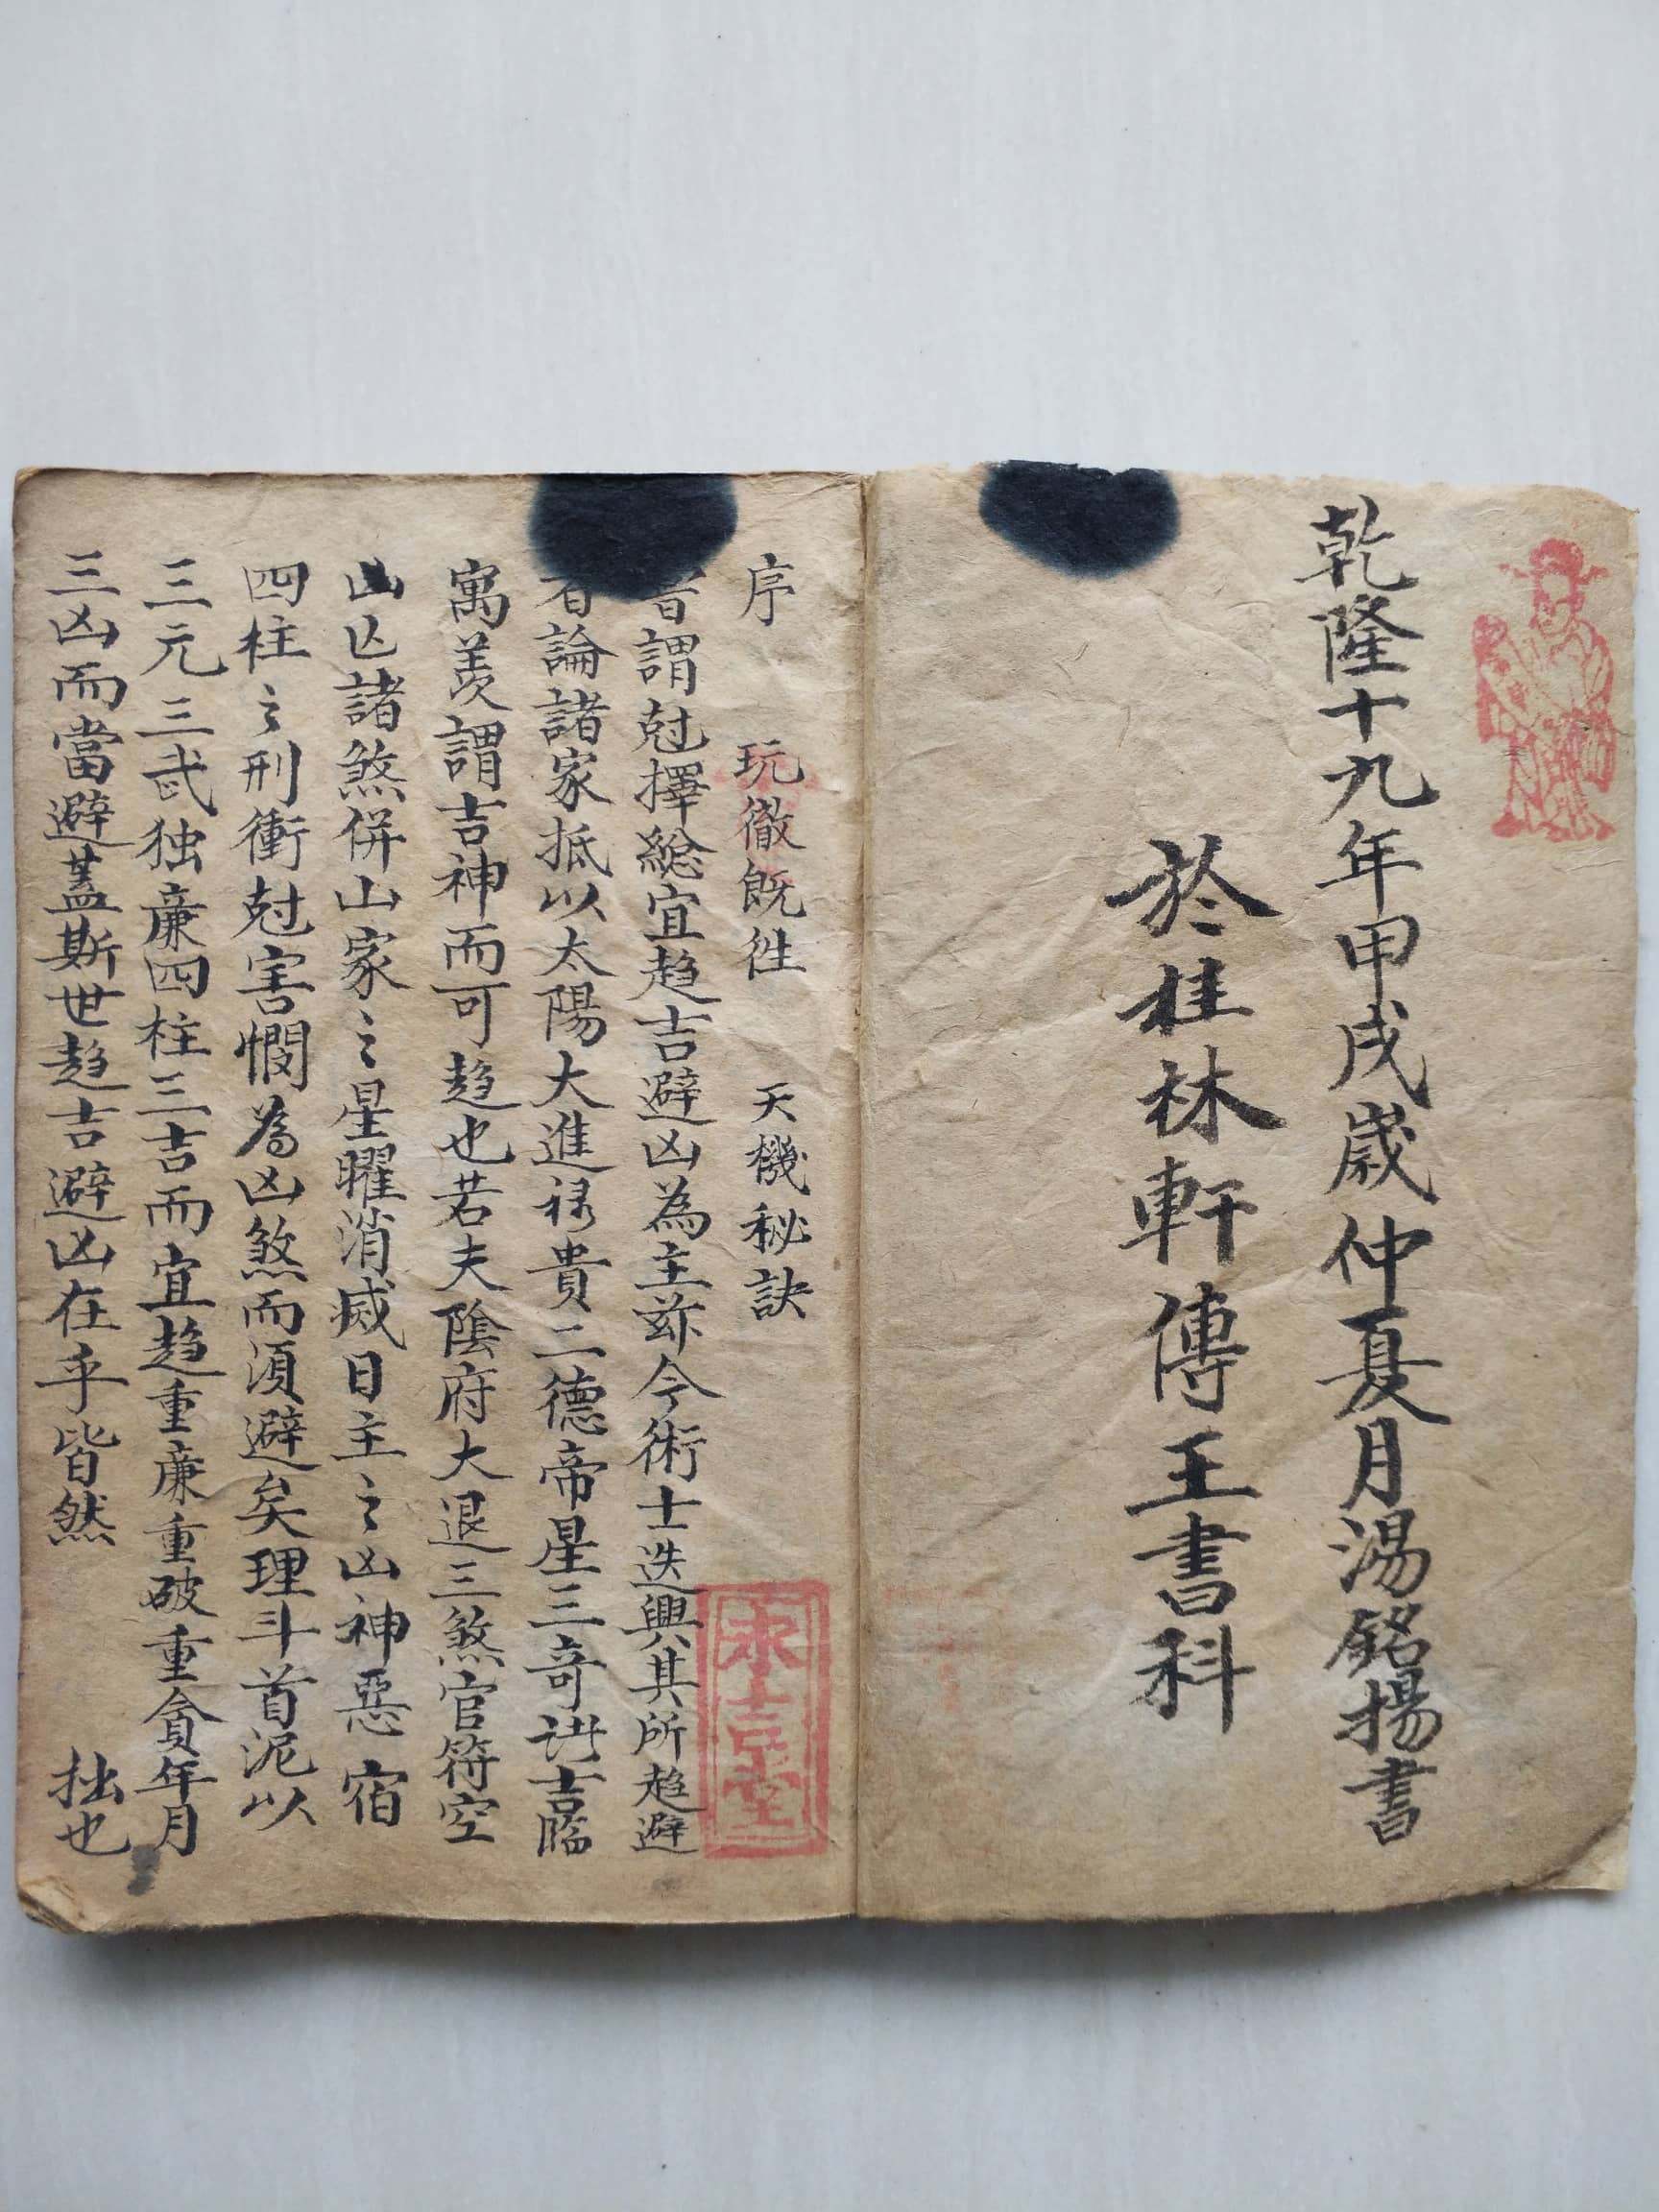 乾隆十九年甲戌歲仲夏月湯銘揚書
於桂林軒傳王書科
序 玩徹既徃 天機秘訣
謂尅擇緫宜趋吉避凶為主茲今術士迭興其所趋避
者論諸家抵以太陽大進祿貴二德帝星三奇諸吉臨
寓羨謂吉神而可趋也若夫陰府大退三煞官符空
山亡諸煞併山家之星曜消滅日主之凶神惡宿
四柱之刑衝尅害憫為凶煞而須避矣理斗首泥以
三元三武独廉四柱三吉而宜趋重廉重破重貪年月
三凶而當避蓋斯世趋吉避凶在乎皆然 拙也
永吉堂